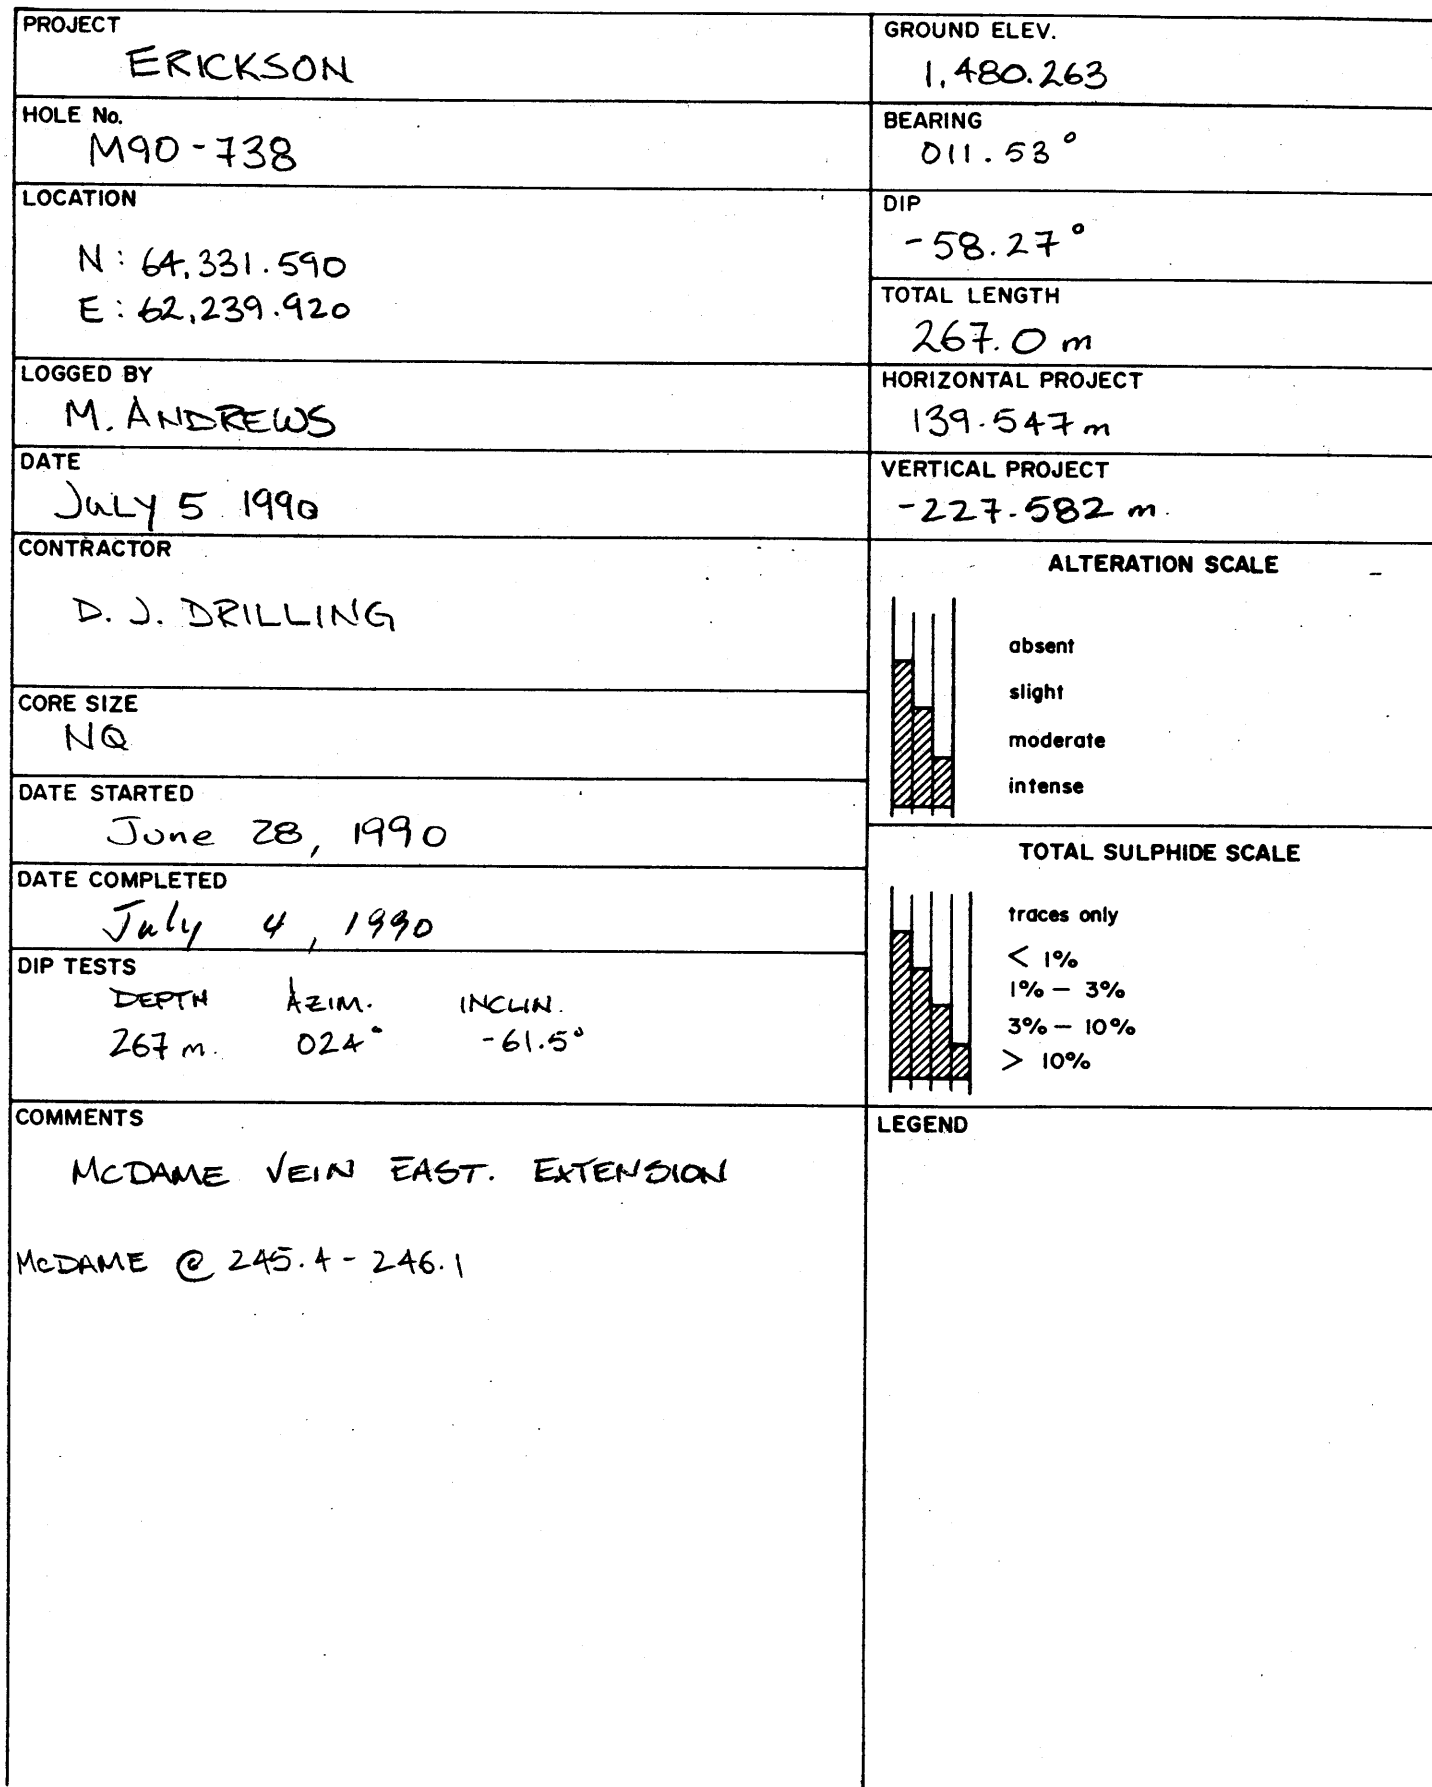 PROJECT
ERICKSON
HOLE No.
M90-738
LOCATION
N: 64,331.590
E: 62,239.920
LOGGED BY
M. ANDREWS
DATE
JULY 5 1990
CONTRACTOR
D. J. DRILLING
CORE SIZE
NQ
DATE STARTED
June 28, 1990
DATE COMPLETED
July 4, 1990
DIP TESTS
DEPTH AZIM. INCLIN.
267 m. 024° -61.5°
COMMENTS
MCDAME VEIN EAST. EXTENSION
McDAME @ 245.4 - 246.1
GROUND ELEV.
1,480.263
BEARING
011.53°
DIP
-58.27°
TOTAL LENGTH
267.0 m
HORIZONTAL PROJECT
139.547 m
VERTICAL PROJECT
-227.582 m.
ALTERATION SCALE
absent
slight
moderate
intense
TOTAL SULPHIDE SCALE
traces only
< 1%
1% – 3%
3% – 10%
> 10%
LEGEND